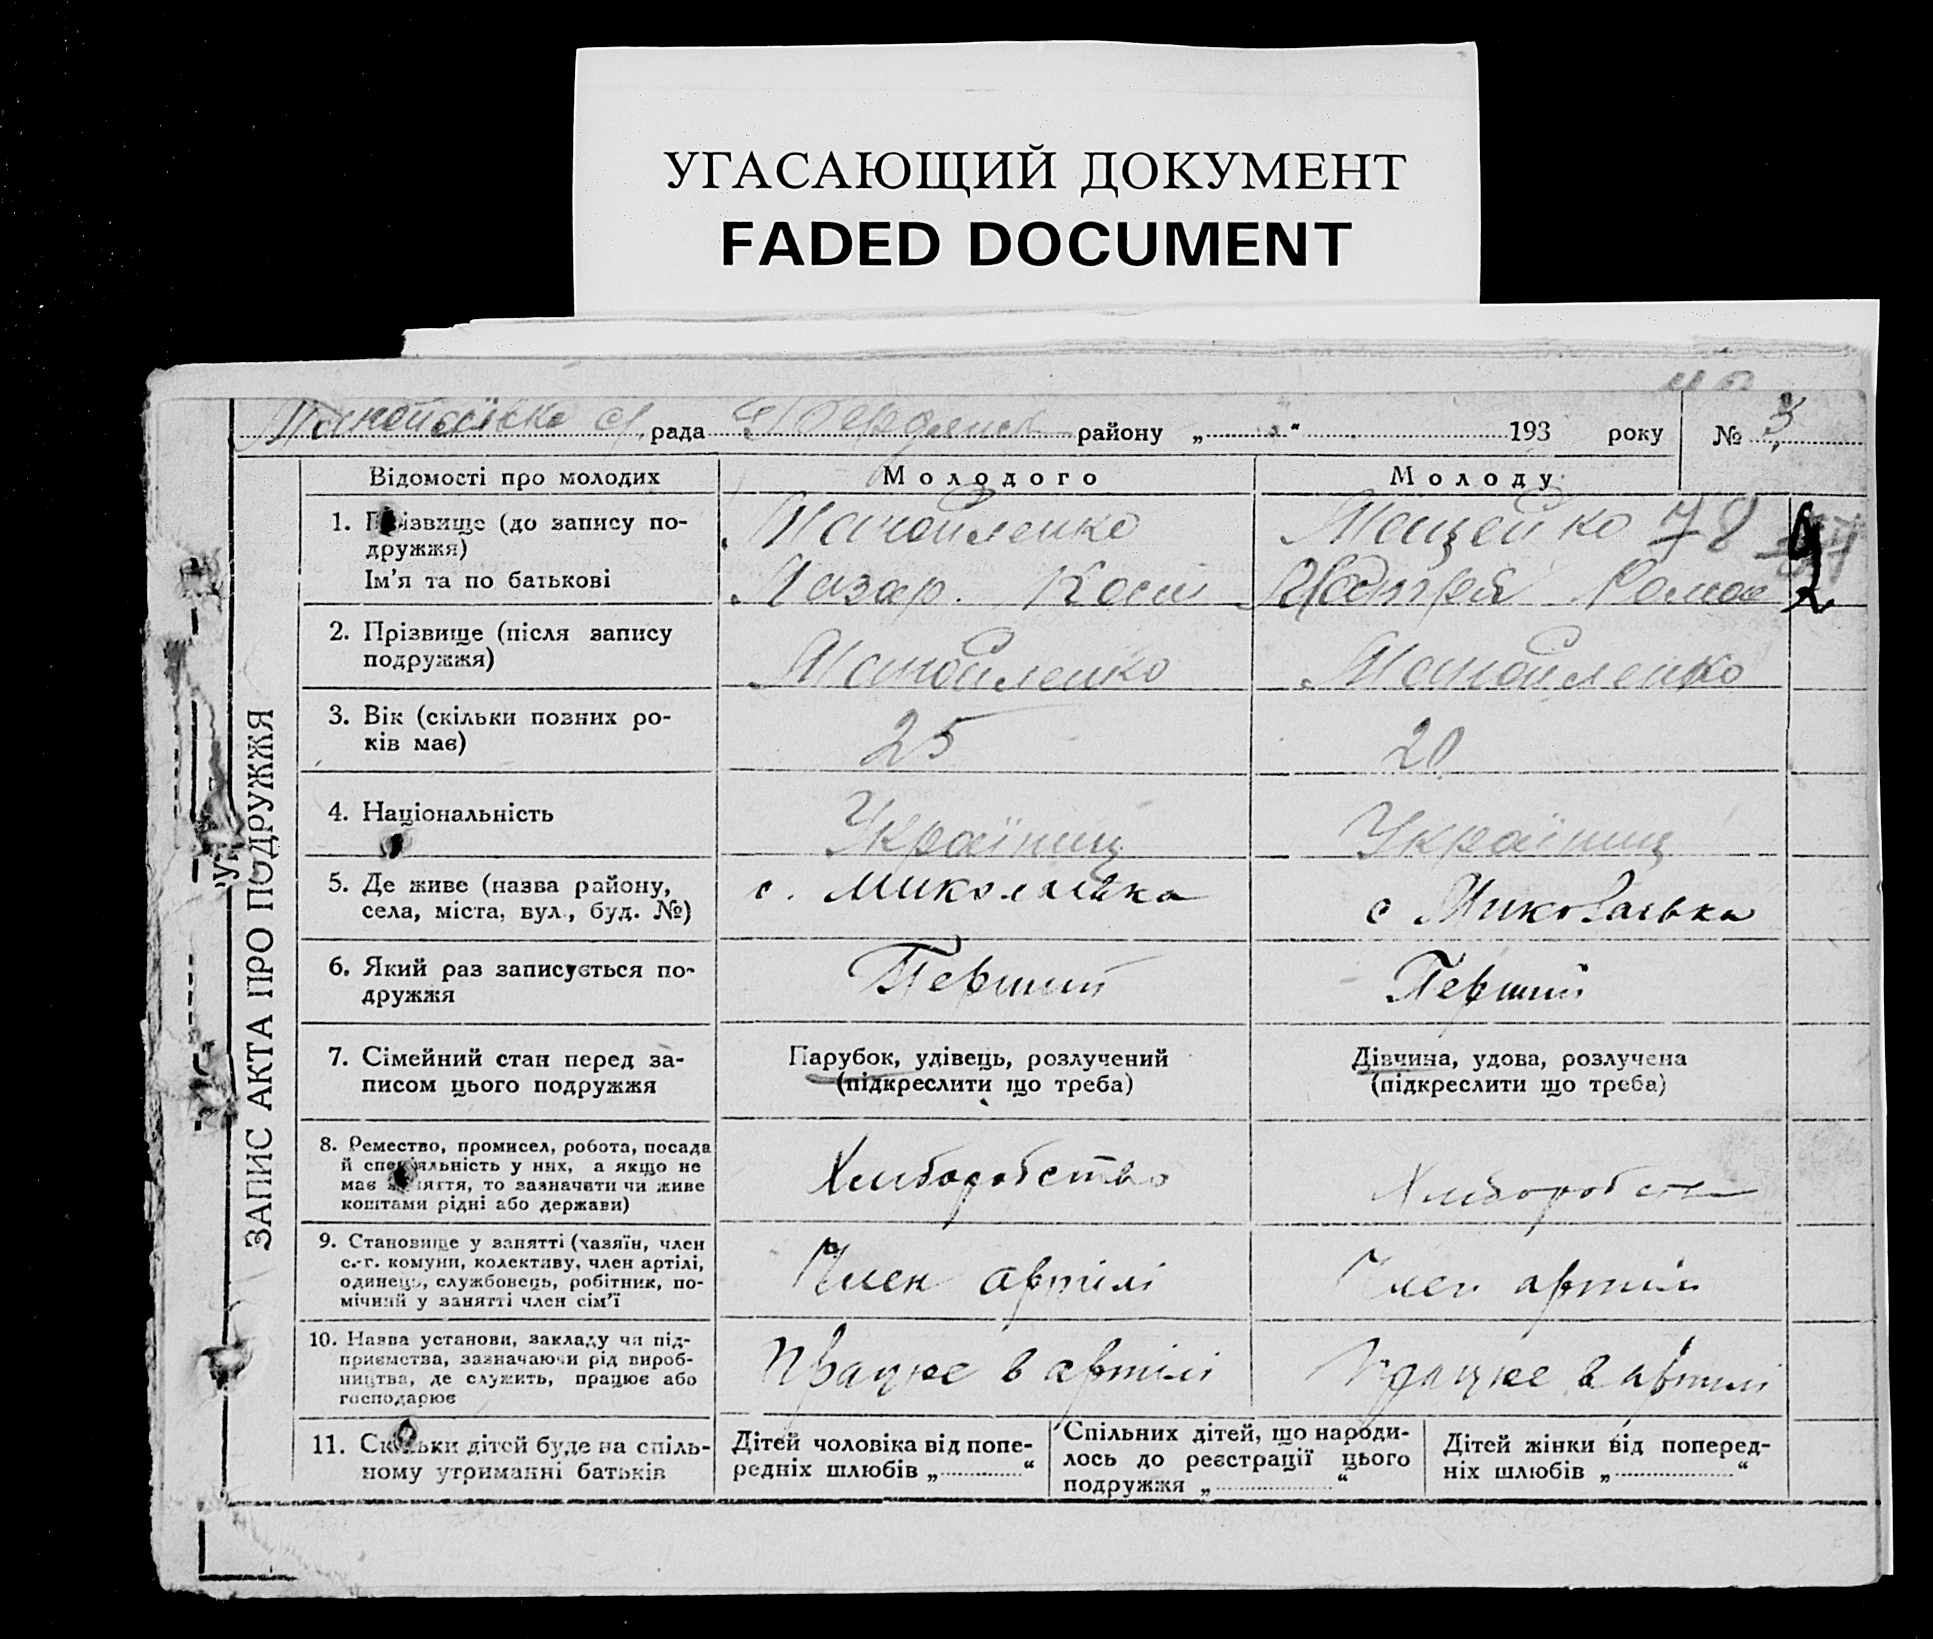 УГАСАЮЩИЙ ДОКУМЕНТ
FADED DOCUMENT
рада району „ “ 193 року № 3
ЗАПИС АКТА ПРО ПОДРУЖЖЯ
Відомості про молодих Молодого Молоду
1. Прізвище (до запису по-
дружжя)
Манойленко Мацейко 78
Ім'я та по батькові Лазар. Кост Роман
2. Прізвище (після запису
подружжя)
Манойленко Манойленко
3. Вік (скільки повних ро-
ків має)
25 20
4. Національність Українц Українц
5. Де живе (назва району,
села, міста, вул., буд. №)
с. Миколаївка с Миколаївка
6. Який раз записується по-
дружжя
Перший Перший
7. Сімейний стан перед за-
писом цього подружжя
Парубок, удівець, розлучений
(підкреслити що треба)
Дівчина, удова, розлучена
(підкреслити що треба)
8. Ремество, промисел, робота, посада
й спеціяльність у них, а якщо не
має заняття, то зазначати чи живе
коштами рідні або держави)
Хліборобство Хліборобство
9. Становище у занятті (хазяїн, член
с.-г. комуни, колективу, член артілі,
одинець, службовець, робітник, по-
мічний у занятті член сім'ї
Член артілі Член артілі
10. Назва установи, закладу чи під-
приємства, зазначаючи рід вироб-
ництва, де служить, працює або
господарює
Працює в артілі Працює в артілі
11. Скільки дітей буде на спіль-
ному утриманні батьків
Дітей чоловіка від попе-
редніх шлюбів „ “
Спільних дітей, що народи-
лось до реєстрації цього
подружжя „ “
Дітей жінки від поперед-
ніх шлюбів „ “